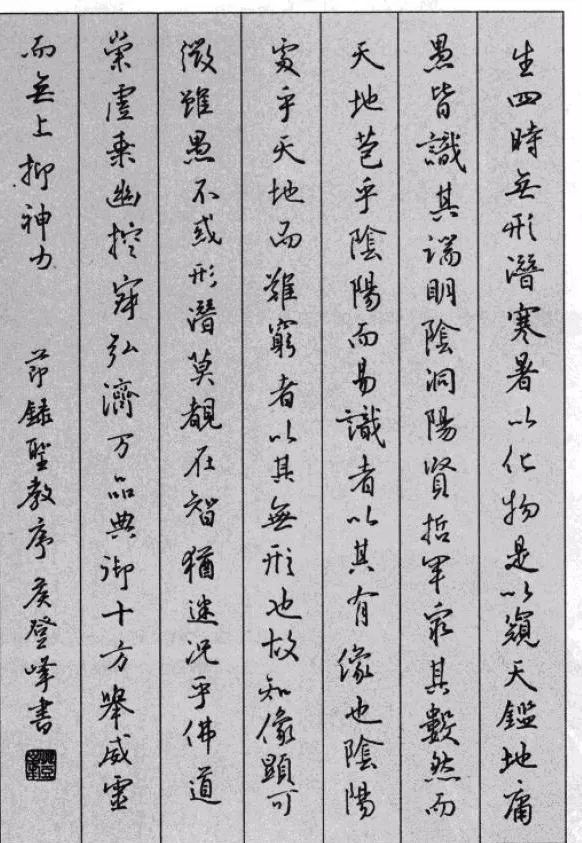 生四時無形潛寒暑以化物是以窺天鑑地庸
愚皆識其端明陰洞陽賢哲罕窮其數然而
天地苞乎陰陽而易識者以其有像也陰陽
處乎天地而難窮者以其無形也故知像顯可
徵雖愚不惑形潛莫覩在智猶迷況乎佛道
崇虛乘幽控寂弘濟万品典御十方舉威靈
而無上抑神力
節録聖教序 侯登峰書